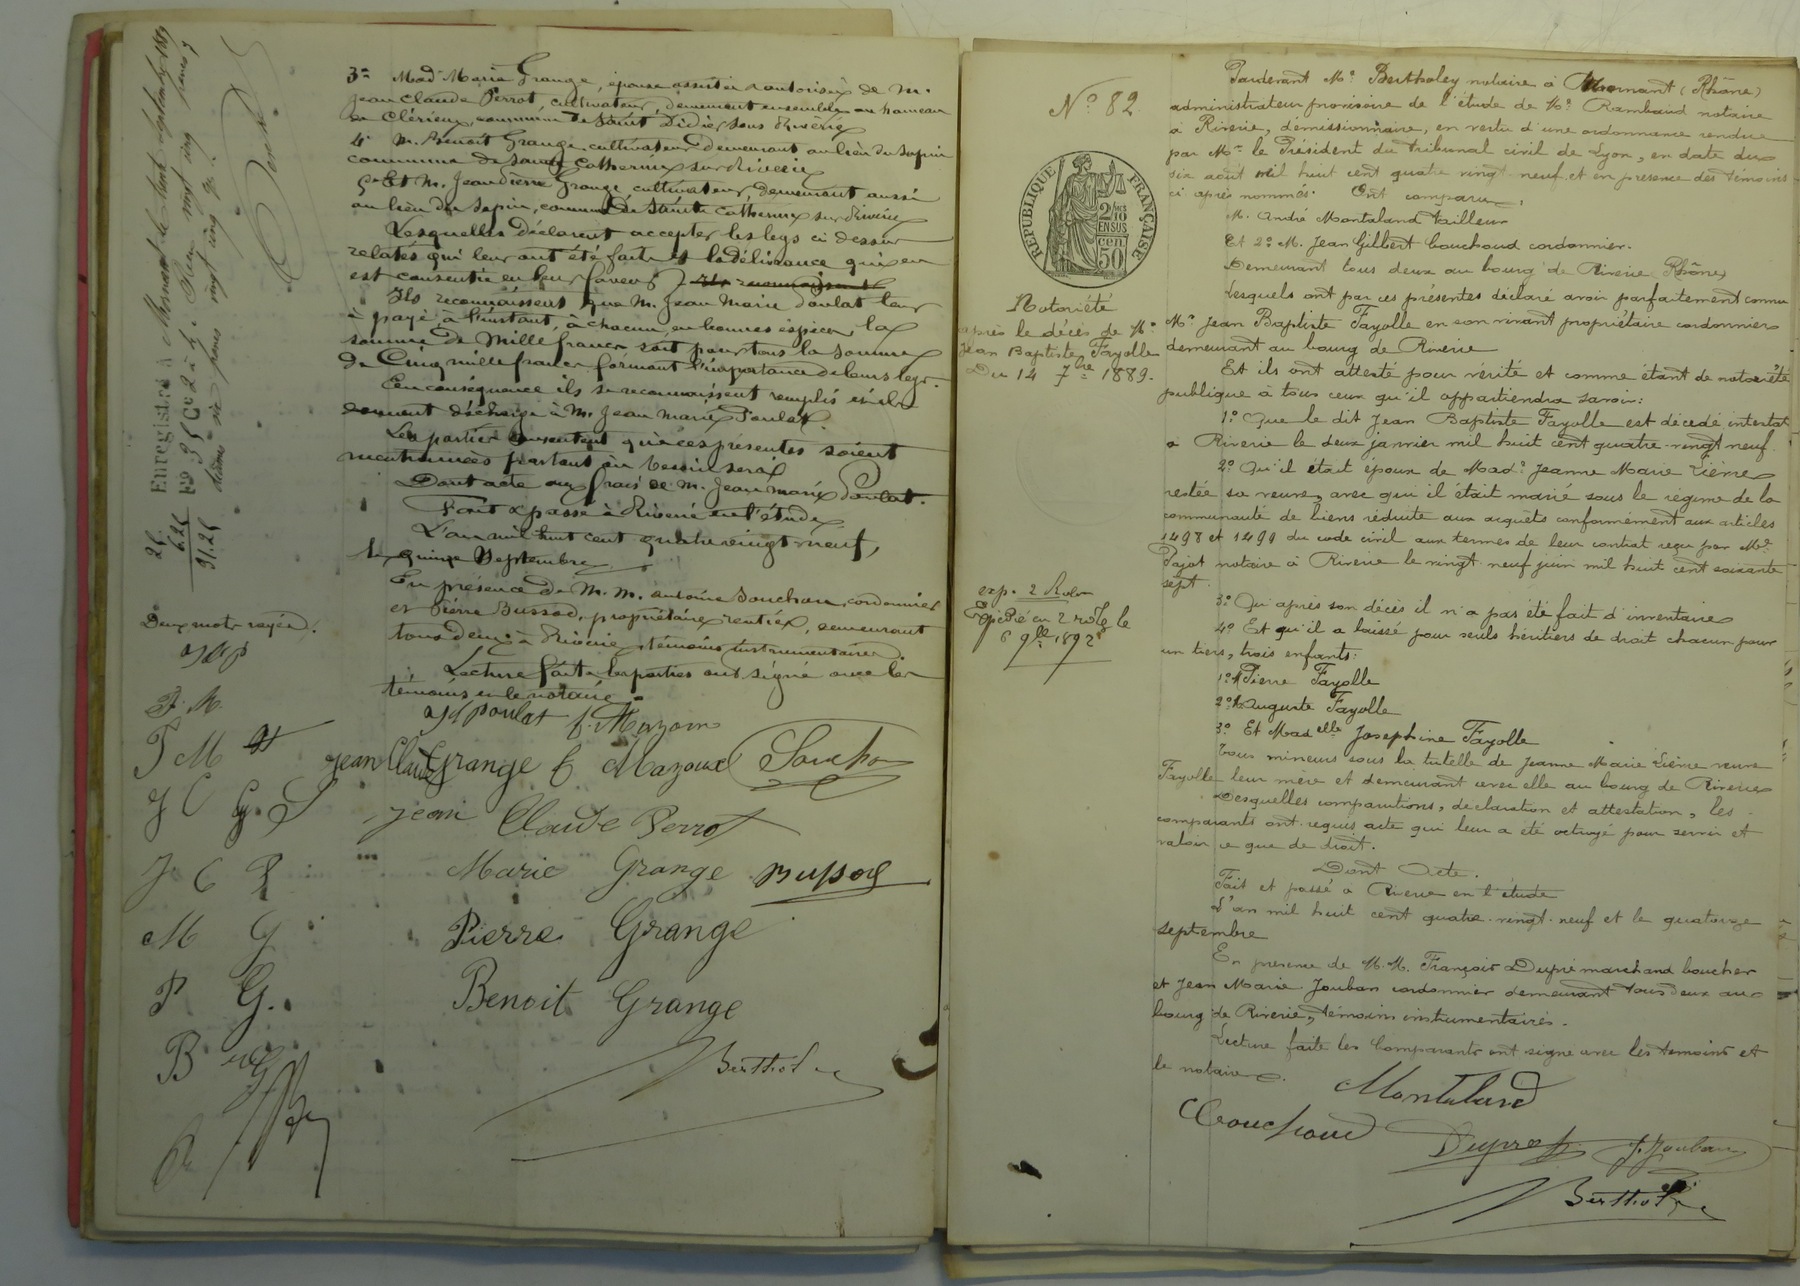 3° Mad. Marie Grange, épouse assistée & autorisée de M.
Jean Claude Perrot, cultivateur, demeurant ensemble au hameau
de Clérieux, commune de Saint Didier sous Riverie
4° M. Benoit Grange cultivateur demeurant au lieu du Sapin
commune de Sainte Catherine sur Riverie
5° Et M. Jean Pierre Grange cultivateur demeurant aussi
au lieu du Sapin, commune de Sainte Catherine sur Riverie
Lesquelles déclarent accepter les legs ci dessus
relatés qui leur ont été faits et la délivrance qui en
est consentie en leur faveur
Ils reconnaissent que M. Jean Marie Poulat leur
a payé à l'instant, à chacun en bonnes espèces la
somme de Mille francs soit pour tous la somme
de Cinq mille francs formant l'importance de leurs legs.
En conséquence ils se reconnaissent remplis et
donnent décharge à M. Jean Marie Poulat.
Les parties consentent que ces présentes soient
mentionnées partout où besoin sera
Dont acte aux frais de M. Jean Marie Poulat.
Fait & passé à Riverie en l'étude
L'an mil huit cent quatre vingt neuf,
le quinze Septembre
En présence de M. M. Antoine Souchon, cordonnier
et Pierre Bussod, propriétaire rentier, demeurant
tous deux à Riverie, témoins instrumentaires.
Lecture faite les parties ont signé avec les
témoins et le notaire.
Poulat f. Mazoux
Jean Claude Grange f Mazoux Souchon
Jean Claude Perrot
Marie Grange Bussod
Pierre Grange
Benoit Grange
Berthol
Enregistré à Mornant le trente septembre 1889
F° 35 C°
25
6.25
31.25
Deux mots rayés.
J M
J C G
J C P
M G
P G.
B G
N° 82
RÉPUBLIQUE FRANÇAISE
2/10 EN SUS
50 cen.
Notoriété
après le décès de M.
Jean Baptiste Fayolle
Du 14 7bre 1889.
exp. 2 Roles
Expédié en 2 rôles le
6 9bre 1892
Pardevant Me Bertholey notaire à Mornant (Rhône)
administrateur provisoire de l'étude de Me Rambaud notaire
à Riverie, démissionnaire, en vertu d'une ordonnance rendue
par Mr le Président du tribunal civil de Lyon, en date du
six août mil huit cent quatre vingt neuf et en présence des témoins
ci après nommés. Ont comparu:
M. André Montaland tailleur
Et 2° M. Jean Gilbert Couchoud cordonnier.
Demeurant tous deux au bourg de Riverie Rhône
Lesquels ont par ces présentes déclaré avoir parfaitement connu
Mr Jean Baptiste Fayolle en son vivant propriétaire cordonnier
demeurant au bourg de Riverie
Et ils ont attesté pour vérité et comme étant de notoriété
publique à tous ceux qu'il appartiendra savoir:
1° Que le dit Jean Baptiste Fayolle est décédé intestat
à Riverie le deux janvier mil huit cent quatre-vingt neuf.
2° Qu'il était époux de Made Jeanne Marie Lième
restée sa veuve, avec qui il était marié sous le régime de la
communauté de biens réduite aux acquêts conformément aux articles
1498 et 1499 du code civil aux termes de leur contrat reçu par Me
Pajot notaire à Riverie le vingt neuf juin mil huit cent soixante
sept.
3° Qu'après son décès il n'a pas été fait d'inventaire
4° Et qu'il a laissé pour seuls héritiers de droit chacun pour
un tiers, trois enfants:
1° Pierre Fayolle
2° Auguste Fayolle
3° Et Madelle Josephine Fayolle
tous mineurs sous la tutelle de Jeanne Marie Lième veuve
Fayolle leur mère et demeurant avec elle au bourg de Riverie
Desquelles comparutions, déclaration et attestation, les
comparants ont requis acte qui leur a été octroyé pour servir et
valoir ce que de droit.
Dont Acte.
Fait et passé à Riverie en l'étude
L'an mil huit cent quatre-vingt-neuf et le quatorze
septembre
En présence de M.M. François Dupré marchand boucher
et Jean Marie Jouban cordonnier demeurant tous deux au
bourg de Riverie, témoins instrumentaires.
Lecture faite les Comparants ont signé avec les témoins et
le notaire.
Montaland
Couchoud
Dupré J. Jouban
Berthol